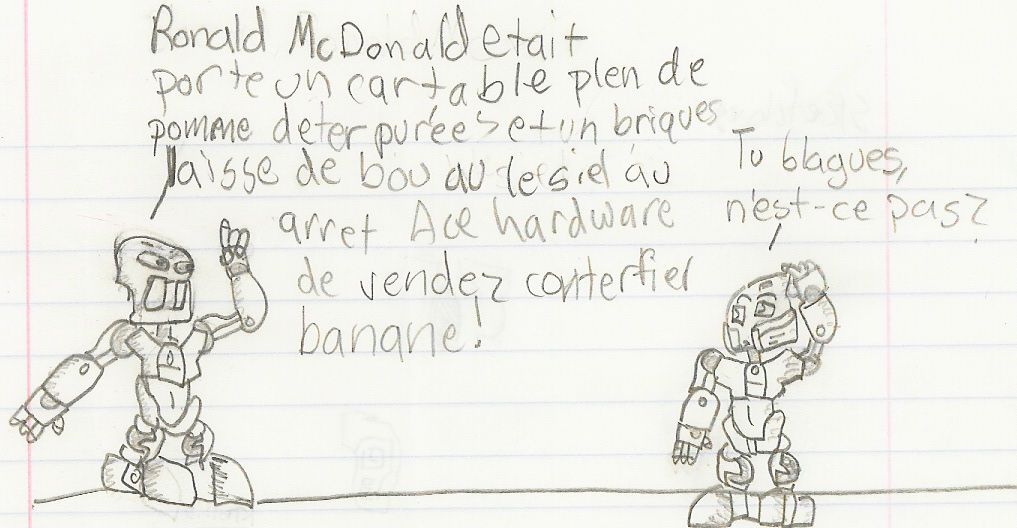 Ronald McDonald etait
porte un cartable plen de
pomme deter purées et un briques
laisse de bou au le siel au
arret Ace hardware
de vendez conterfier
banane!
Tu blagues,
n'est-ce pas?